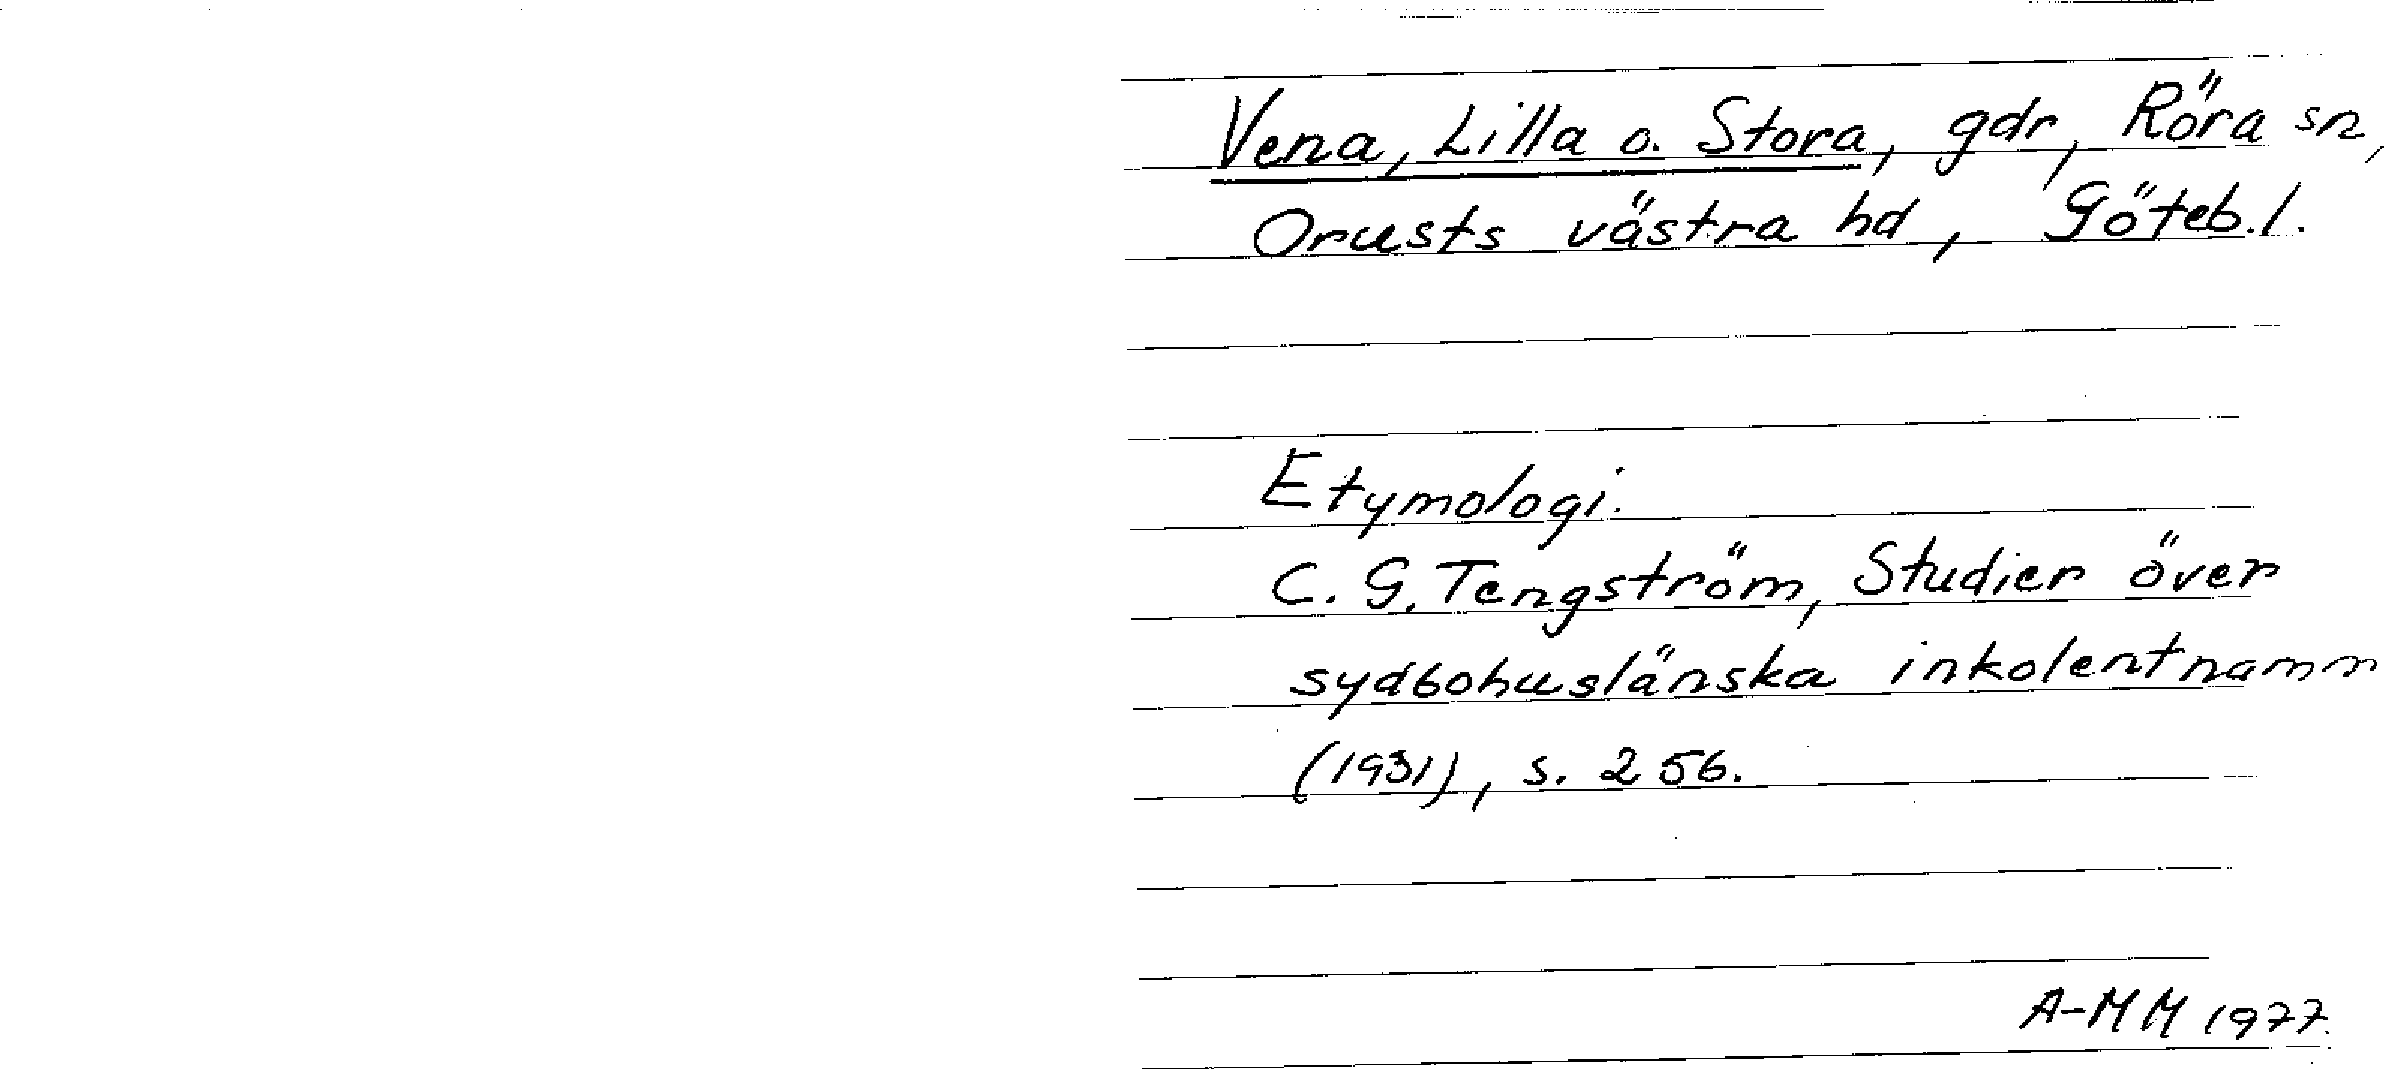 Vena, Lilla o. Stora, gdr, Röra sn,
Orusts västra hd, Göteb. l.
Etymologi.
C. G. Tengström, Studier över
sydbohuslänska inkolentnamn
(1931), s. 256.
A-MM 1977.